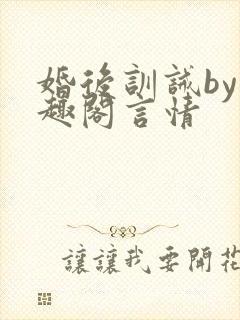 婚後訓誡by
趣閣言情
讓讓我要開花